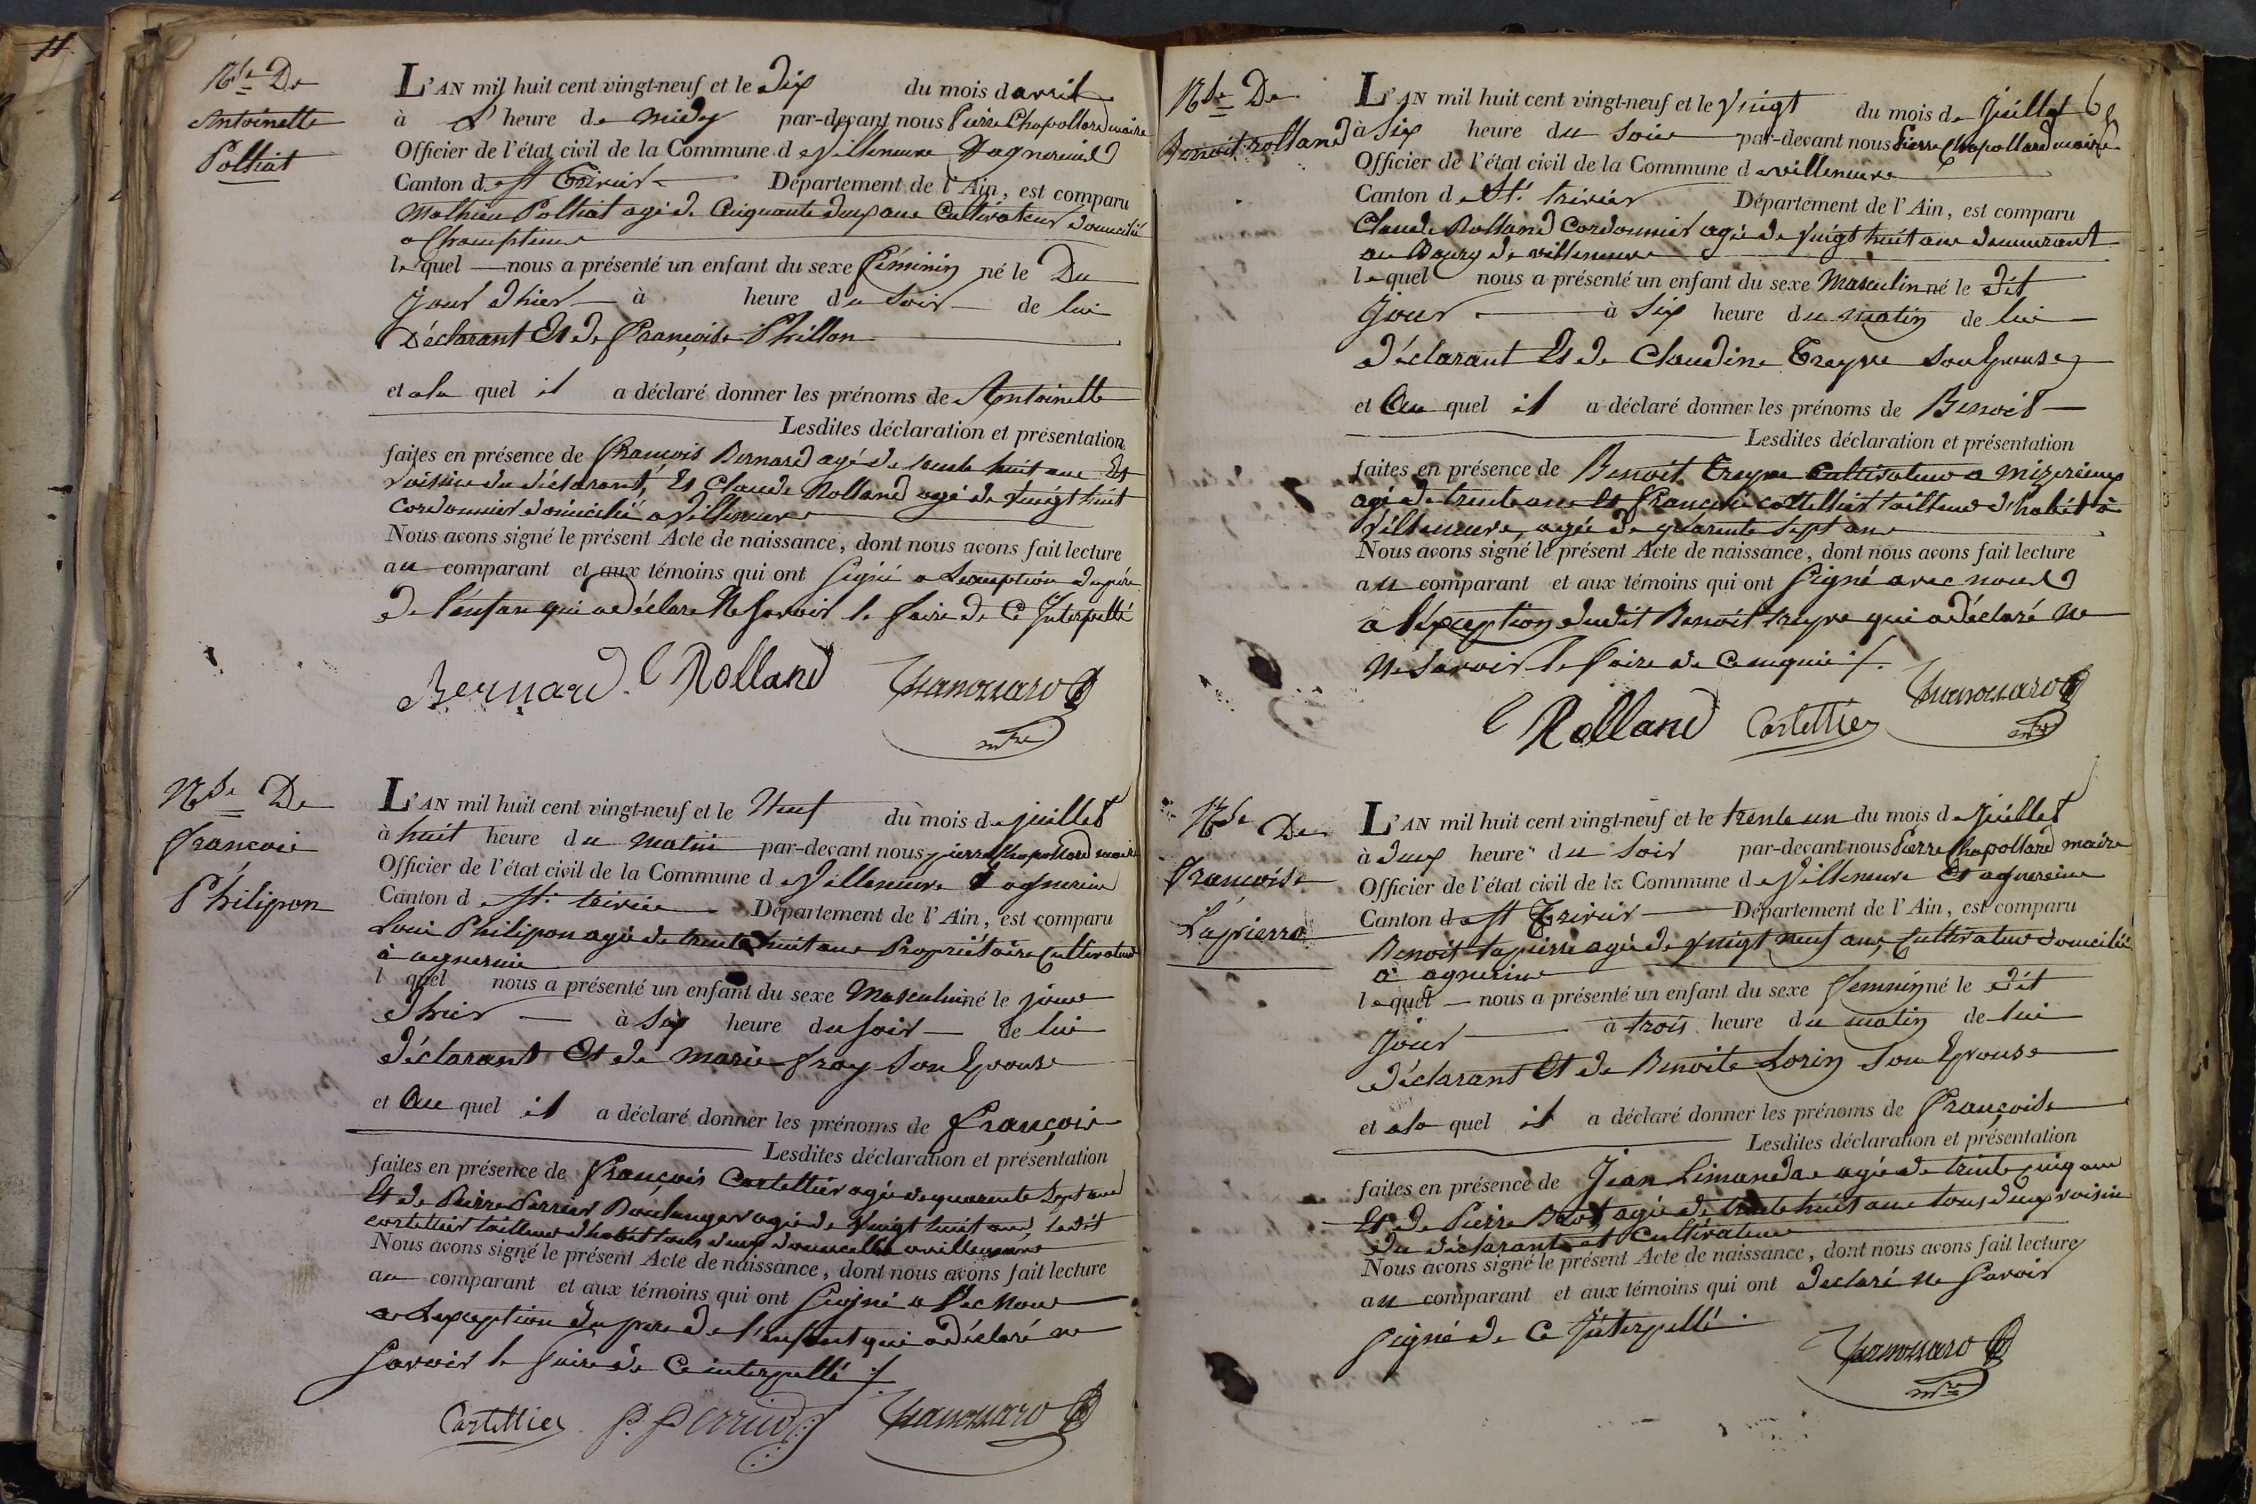 11
Nce De
Antoinette
Polliat
L'AN mil huit cent vingt-neuf et le Dix du mois d avril
à heure de midy par-devant nous Pierre Chapollard maire
Officier de l'état civil de la Commune d e Villeneuve Dagnereind
Canton d e St Trivier Département de l'Ain, est comparu
Mathieu Polliat agé de Cinquante deux ans Cultivateur domicilié
a Champteins
le quel nous a présenté un enfant du sexe féminin né le Du
Jour d'hier à heure du Soir de lui
Déclarant Et de Françoise Phillon
et a la quel il a déclaré donner les prénoms de Antoinette
Lesdites déclaration et présentation
faites en présence de François Bernard agé de trente huit ans Et
voisin du déclarant, Et Claude Rolland agé de vingt huit
cordonnier domicilié a Villeneuve
Nous avons signé le présent Acte de naissance, dont nous avons fait lecture
au comparant et aux témoins qui ont Signé a Lexception du père
de l'enfan qui a déclaré Ne Savoir le faire de Ce Interpellé
Bernard C Rolland
mre
Nce De
françois
Philipon
L'AN mil huit cent vingt-neuf et le Neuf du mois de juillet
à huit heure du matin par-devant nous pierre Chapollard maire
Officier de l'état civil de la Commune d e Villeneuve d agnereins
Canton d e St. trivier Département de l'Ain, est comparu
Loui Philipon agé de trente huit ans Propriétaire Cultivateur
à agnereins
l quel nous a présenté un enfant du sexe Masculin né le jour
d'hier à Six heure du soir de lui
déclarant Et de marie fray Son Epouse
et Au quel il a déclaré donner les prénoms de François
Lesdites déclaration et présentation
faites en présence de François Cartellier agé de quarante Sept ans
Et de Pierre Perrier Boulanger agé de vingt huit ans, ledit
cartellier tailleur d'habit tous deux domicillié a villeneuve
Nous avons signé le présent Acte de naissance, dont nous avons fait lecture
au comparant et aux témoins qui ont Signé a Vec Nous
a Lexception du pere de l'enfant qui a déclaré ne
Savoir le faire de Ce interpellé
Cartellier P. Perrier
Nce De
Benoit rolland
L'AN mil huit cent vingt-neuf et le Vingt du mois de Juillet
à Six heure du Soir par-devant nous Pierre Chapollard maire
Officier de l'état civil de la Commune d e villeneuve
Canton d e St. trivier Département de l'Ain, est comparu
Claude Rolland Cordonnier agé de vingt huit ans demeurant
au Bourg de villeneuve
le quel nous a présenté un enfant du sexe Masculin né le dit
Jour à Six heure du matin de lui
déclarant Et de Claudine Treyve Son Epouse
et Au quel il a déclaré donner les prénoms de Benoit
Lesdites déclaration et présentation
faites en présence de Benoit Treyve Cultivateur a Mizerieux
agé de trente ans Et françois cartellier tailleur d'habit à
Villeneuve, agée de quarente Sept ans
Nous avons signé le présent Acte de naissance, dont nous avons fait lecture
au comparant et aux témoins qui ont Signé avec nous
a l'éxception dudit Benoit treyve qui a déclaré ne
Ne Savoir le faire de Ce
C Rolland Cartellier
mre
Nce De
Françoise
Lapierre
L'AN mil huit cent vingt-neuf et le trente un du mois de Juillet
à deux heure du Soir par-devant nous Pierre Chapollard maire
Officier de l'état civil de la Commune d e Villeneuve Et agnereins
Canton d e St Trivier Département de l'Ain, est comparu
Benoit Lapierre agé de vingt neuf ans, Cultivateur domicilié
à agnereins
le quel nous a présenté un enfant du sexe feminin né le dit
Jour à trois heure du matin de lui
déclarant Et de Benoite Lorin Son Epouse
et a la quel il a déclaré donner les prénoms de Françoise
Lesdites déclaration et présentation
faites en présence de Jean Limandas agé de trente cinq ans
Et de Pierre agé de trente huit ans tous deux voisin
du déclarant et Cultivateur
Nous avons signé le présent Acte de naissance, dont nous avons fait lecture
au comparant et aux témoins qui ont declaré ne Savoir
signé de Ce Interpellé.
mre